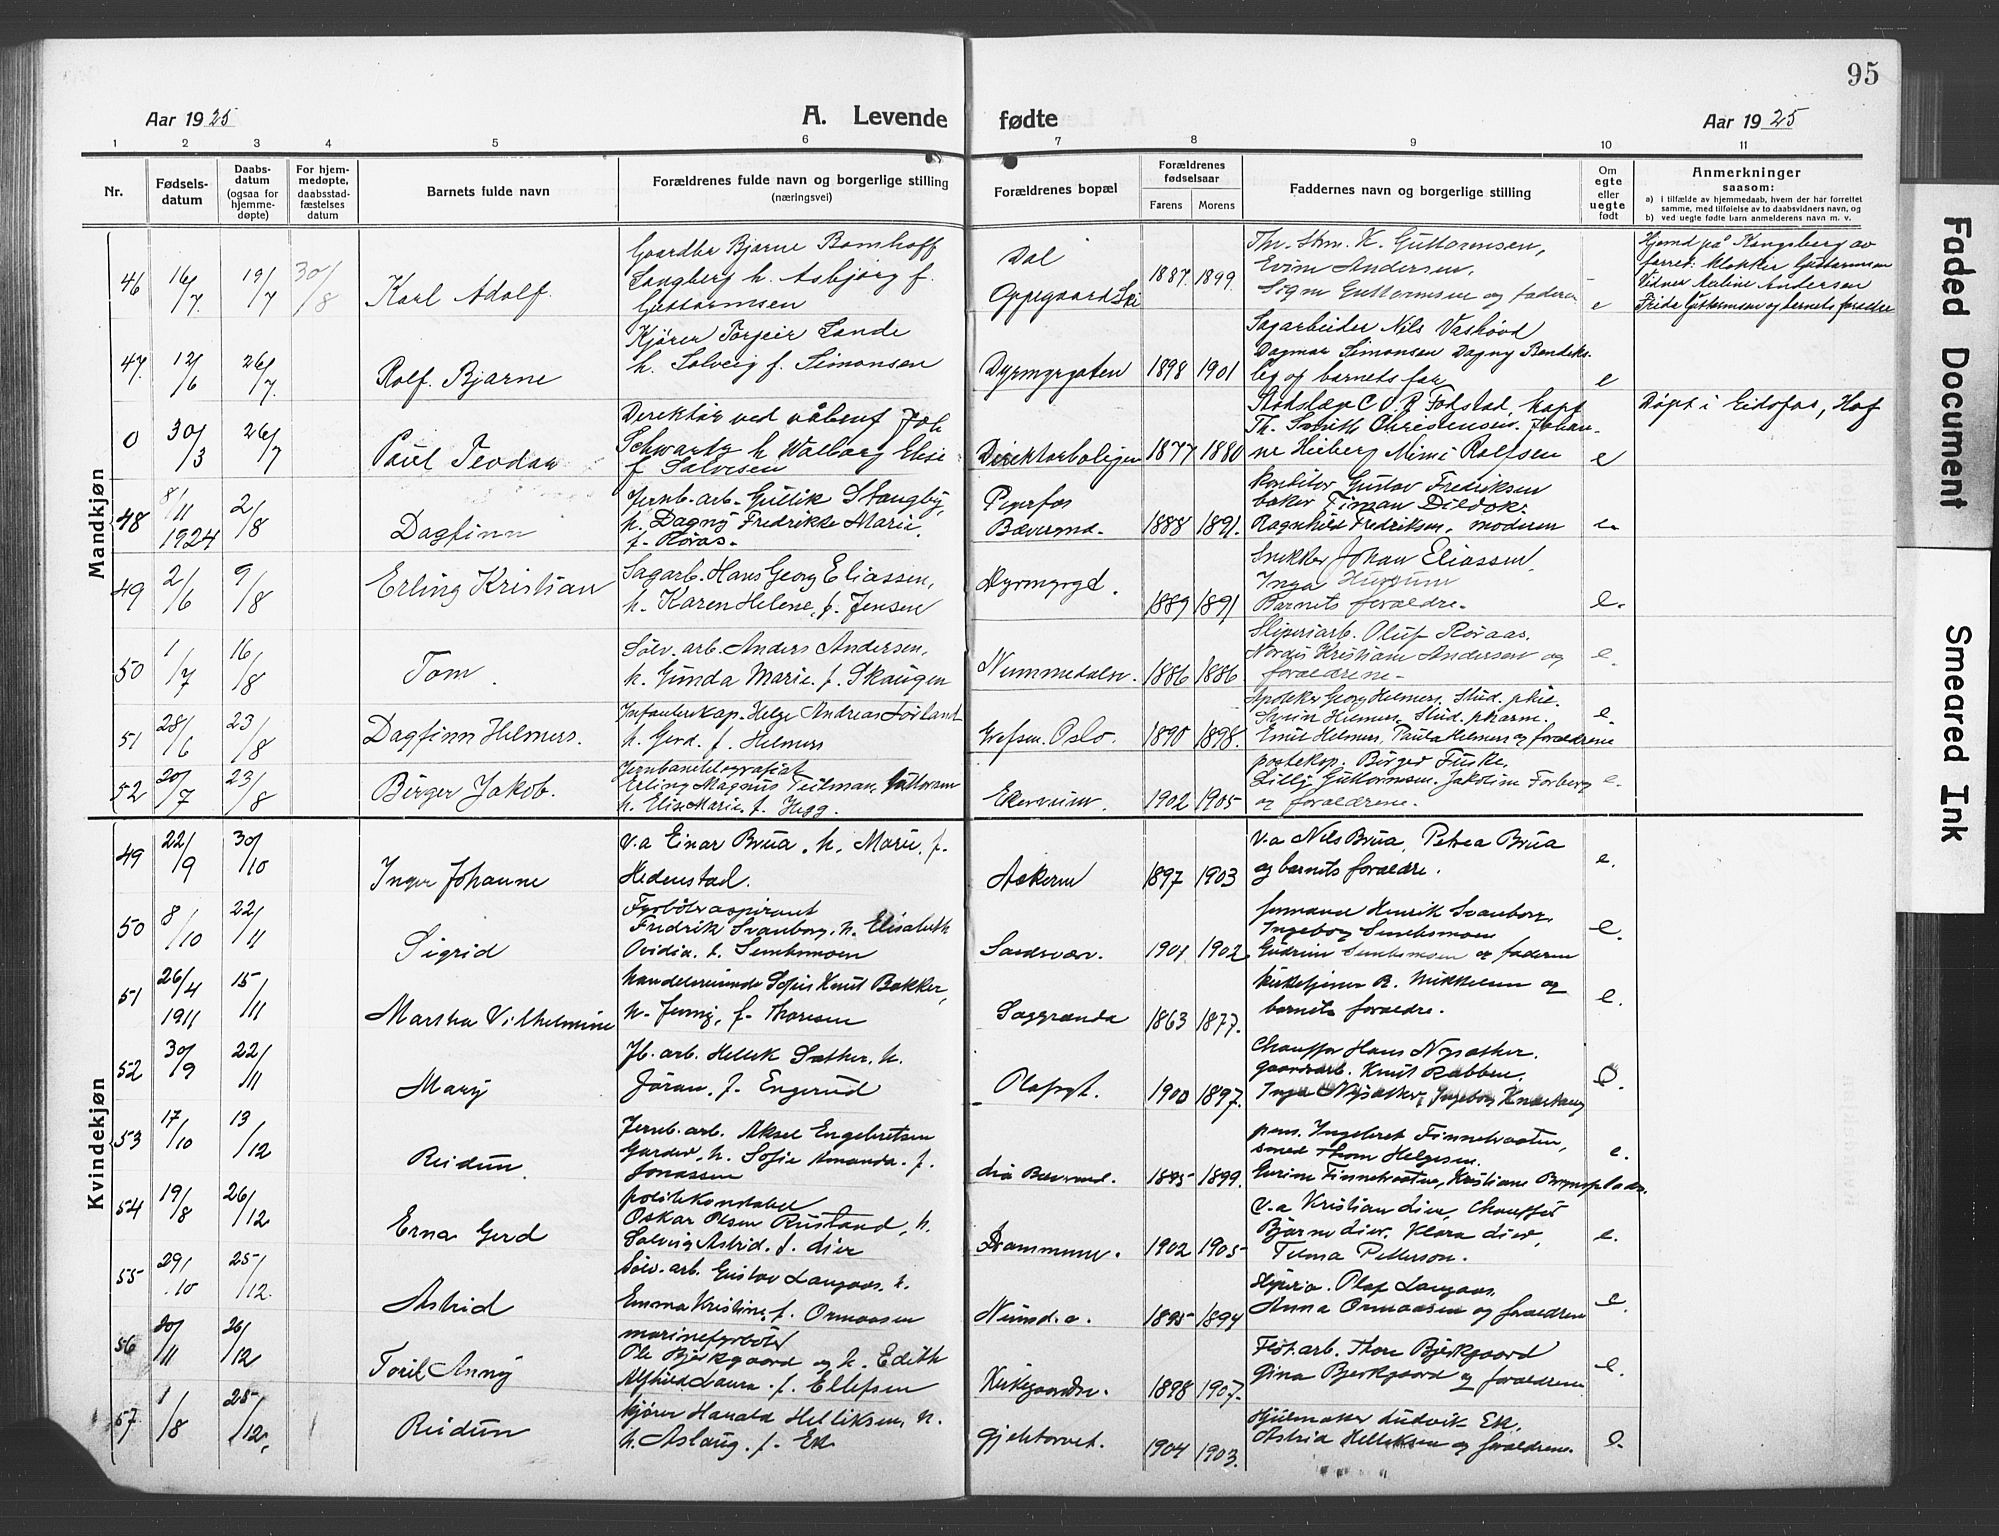 95
Aar 1925
A. Levende fødte
Aar 1925
1 2 3 4 5 6 7 8 9 10 11
Nr.
Fødsels-
datum
Daabs-
datum
(ogsaa for
hjemme-
døpte)
For hjem-
medøpte,
daabsstad-
fæstelses
datum
Barnets fulde navn
Forældrenes fulde navn og borgerlige stilling
(næringsvei)
Forældrenes bopæl
Forældrenes
fødselsaar
Farens Morens
Faddernes navn og borgerlige stilling
Om
egte
eller
uegte
født
Anmerkninger
saasom:
a) i tilfælde av hjemmedaab, hvem der har forrettet
samme, med tilføielse av to daabsvidners navn, og
b) ved uegte fødte barn anmelderens navn m. v.
Mandkjøn
46 16/7. 19/7 30/8 Karl Adolf.
Gaardbr Bjarne Bomhoff
Langberg h. Asbjørg f.
Guttormsen
Dal
Oppegaard Ski
1887. 1899.
Th. Stm. K. Guttormsen,
Evim Andersen,
Signe Guttormsen og faderen
e
Hjemd på Kongsberg av
forret: klokker Guttormsen
Vidner Andersen
Frida Guttormsen og barnets forældre
47. 12/6 26/7. Rolf. Bjarne
Kjører Torgeir Lande
h. Solveig f. Simonsen
Dyrmyrgaten 1898 1901
Sagarbeider Nils Vashovd
Dagmar Simonsen Dagny Bendiks-
og barnets far
e
0 30/3 26/7 Paul Teodar
Direktør ved våbenf Joh
Schwartz h Walborg Elise
f Salvesen
Direktørboligen 1877 1880
C. O. P. Fodstad, kapt
Th. Smith Christensen. Johan-
ne Heiberg Mimi Rolfsen
e
Døpt i Eidsfos, Hof
48 8/11 1924 2/8 Dagfinn
Jernb. arb. Gullik Stangby,
h. Dagny Fredrikke Marie.
f. Røraas.
Pegerfos
Bæverend. 1888 1891.
konditor Gustav Fredriksen
baker
Ragnhild Fredriksen, moderen
e
49 2/6 9/8 Erling Kristian
Sagarb. Hans Georg Eliassen,
h. Karen Helene, f. Jensen
Dyrmyrgd. 1889 1891
Snekker Johan Eliassen,
Inga Hurum
Barnets forældre.
e.
50 1/7 16/8 Tom.
Sølv. arb. Anders Andersen,
h. Gunda Marie. f. Skaugen
Nummedalsv. 1886 1886
Sliperiarb. Oluf Røraas.
Nordis Kristiane Andersen og
forældrene.
e.
51 28/6 23/8 Dagfinn Helmers.
Infanterikap. Helge Andreas Tørland
h. Gerd. f. Helmers
Grefsen. Oslo. 1890 1898.
Apoteker Georg Helmers. Stud. phil.
Svein Helmers. Stud. pharm.
Emil Helmers. Paula Helmers og forældrene
e.
52 20/7 23/8 Birger Jakob.
Jernbanetelegrafist
Erling Magnus Teilman, Guttorm
h. Elise Marie. f. Hegg.
1902 1905
postekop. Birger Fuske.
Lilly Guttormsen. Jakobine Forberg
og forældrene.
e.
Kvindekjøn
49 22/9 30/10 Inger Johanne
v.a Einar Brua. h. Marie. f.
Hedenstad.
Aakerne 1897 1903
v.a Nils Brua, Petrea Brua
og barnets forældre.
e.
50 8/10 22/11 Sigrid
Fyrbøteraspirant
Fredrik Svanborg. h. Elisabeth
Ovidia. f. Sembsmoen
Sandsvær. 1901 1902
Henrik Svanborg.
Ingeborg Sembsmoen
Gudrun Sembsmoen og faderen
e.
51 26/4 1911 15/11 Martha Vilhelmine
handelsreisende Sofus Knut Bakker,
h. Jenny, f. Thoresen
Saggrenda 1863 1877.
kirketjener R. Mikkelsen og
barnets forældre.
e.
52 30/9 22/11 Mary
Jb. arb. Hellek Sæther. h.
Jøran. f. Engerud
Olafsgt. 1900 1897.
Chauffør Hans Nysæther.
gaardsarb. Knut Rabben.
Inga Nysæther, Ingeborg
e.
53 17/10 13/12 Reidun.
Jernb. arb. Aksel Engebretsen
h. Sofie Amanda. f.
Jonassen
1895 1899.
pens. Ingebret Finnekaasten,
smed Thom Helgesen.
Kristiane
e.
54 19/8 26/12 Erna Gerd
politikonstabel
Oskar Olsen Rustand, h.
Solveig Astrid. f. Lier
Drammen. 1902 1905
v.a Kristian Lier, Chauffør
Bjarne Lier, Klara Lier,
Telma Petterson.
e.
55 29/10 25/12. Astrid
Sølv. arb. Gustav Langaas. h.
Emma Kristine, f. Ormaasen
Numd.v. 1895 1894
Sliperia. Olaf Langaas.
Anna Ormaasen og forældrene
e.
56 20/11 26/12 Toril Anny
marinefyrbøter
Ole Bjerkgaard og h. Edith
Alfhild Laura. f. Ellefsen
Kirkegaardsv. 1898 1907.
Fløt. arb. Thor Bjerkgaard
Gina Bjerkgaard og forældrene
e.
57. 1/8 25/12. Reidun
kjører Harald Helliksen, h.
h. Aslaug. f. Ek
Gjeltorvet. 1904 1903.
Hjulmaker Ludvik Ek,
Astrid Helliksen og forældrene.
e.
Faded Document
Smeared Ink